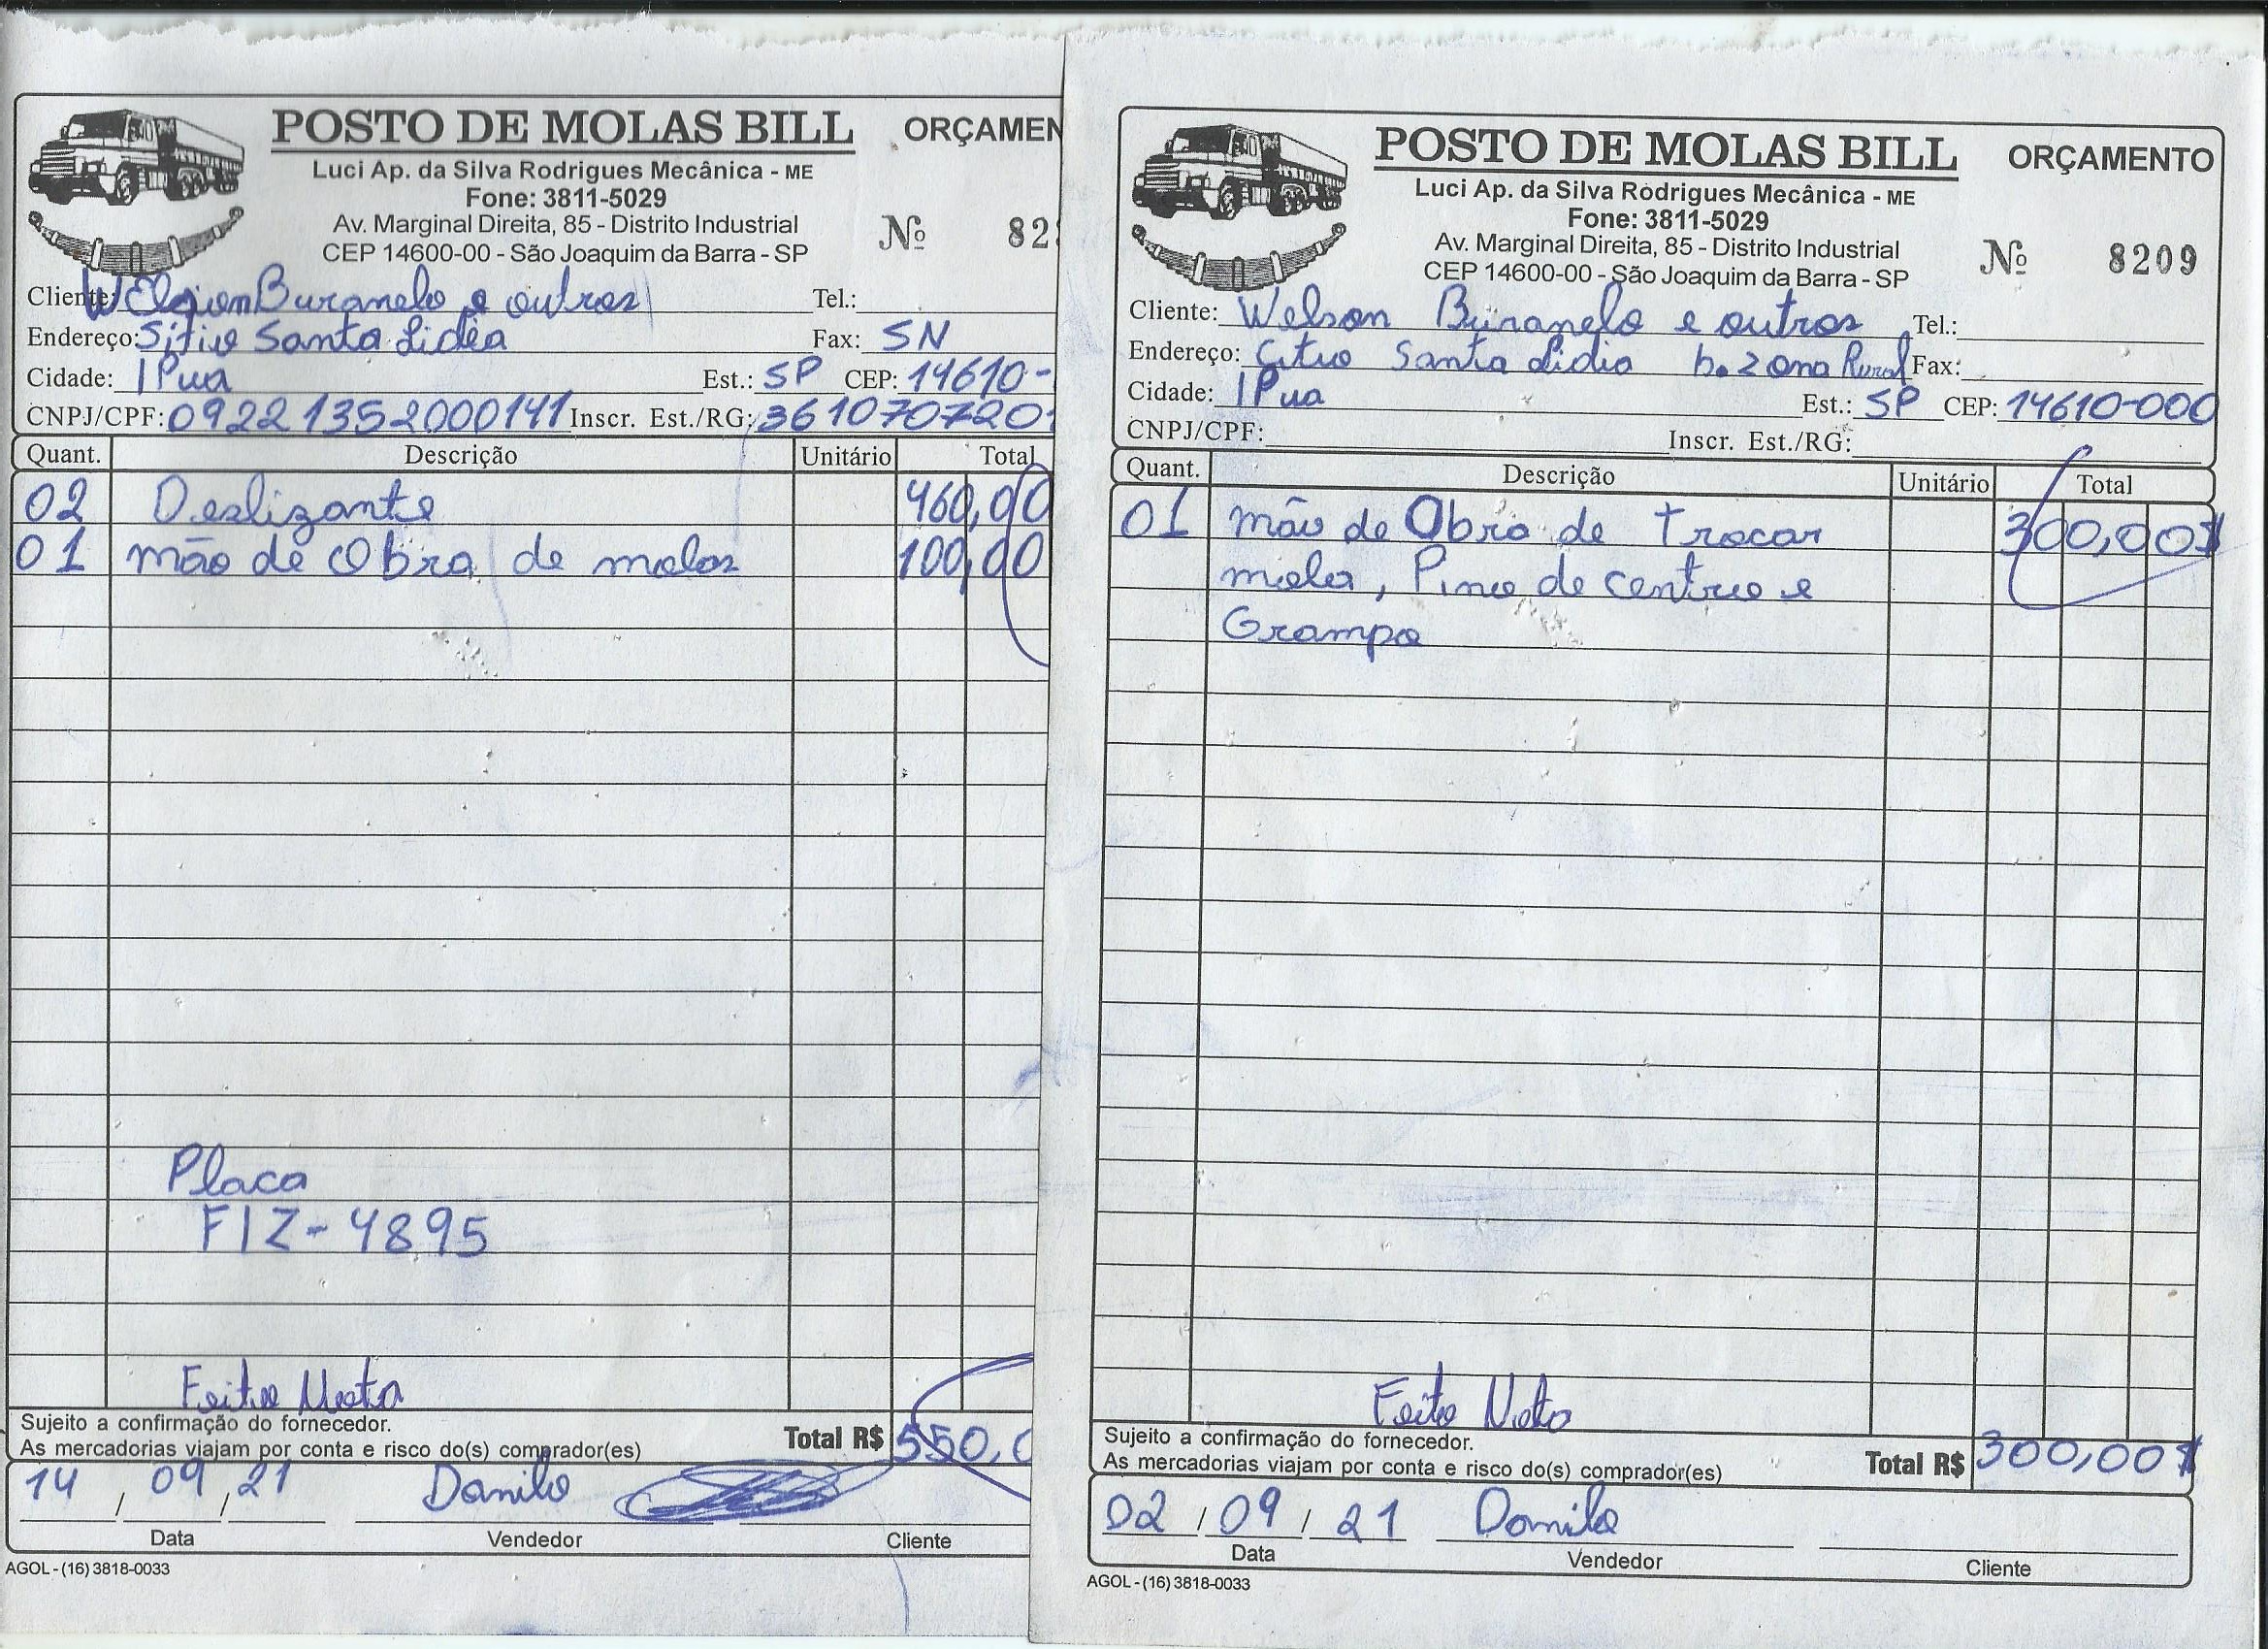 POSTO DE MOLAS BILL ORÇAMEN
Luci Ap. da Silva Rodrigues Mecânica - ME
Fone: 3811-5029
Av. Marginal Direita, 85 - Distrito Industrial
CEP 14600-00 - São Joaquim da Barra - SP
Nº 82
Cliente: Buranelo e outros Tel.:
Endereço: Sitio Santa Lidia Fax: SN
Cidade: IPua Est.: SP CEP: 14610-
CNPJ/CPF: 09221352000141 Inscr. Est./RG: 361070720
Quant. Descrição Unitário Total
02 Deslizante 460,00
01 mão de Obra de molas 100,00
Placa
FIZ-4895
Feito Nota
Sujeito a confirmação do fornecedor.
As mercadorias viajam por conta e risco do(s) comprador(es)
Total R$ 550,0
14 / 09 / 21 Danilo
Data Vendedor Cliente
AGOL - (16) 3818-0033
POSTO DE MOLAS BILL ORÇAMENTO
Luci Ap. da Silva Rodrigues Mecânica - ME
Fone: 3811-5029
Av. Marginal Direita, 85 - Distrito Industrial
CEP 14600-00 - São Joaquim da Barra - SP
Nº 8209
Cliente: Welson Buranelo e outros Tel.:
Endereço: Citio Santa Lidia b. zona Rural Fax:
Cidade: IPua Est.: SP CEP: 14610-000
CNPJ/CPF: Inscr. Est./RG:
Quant. Descrição Unitário Total
01 mão de Obra de Trocar 300,00$
mola, Pino de centro e
Grampo
Feito Nota
Sujeito a confirmação do fornecedor.
As mercadorias viajam por conta e risco do(s) comprador(es)
Total R$ 300,00$
02 / 09 / 21 Danilo
Data Vendedor Cliente
AGOL - (16) 3818-0033